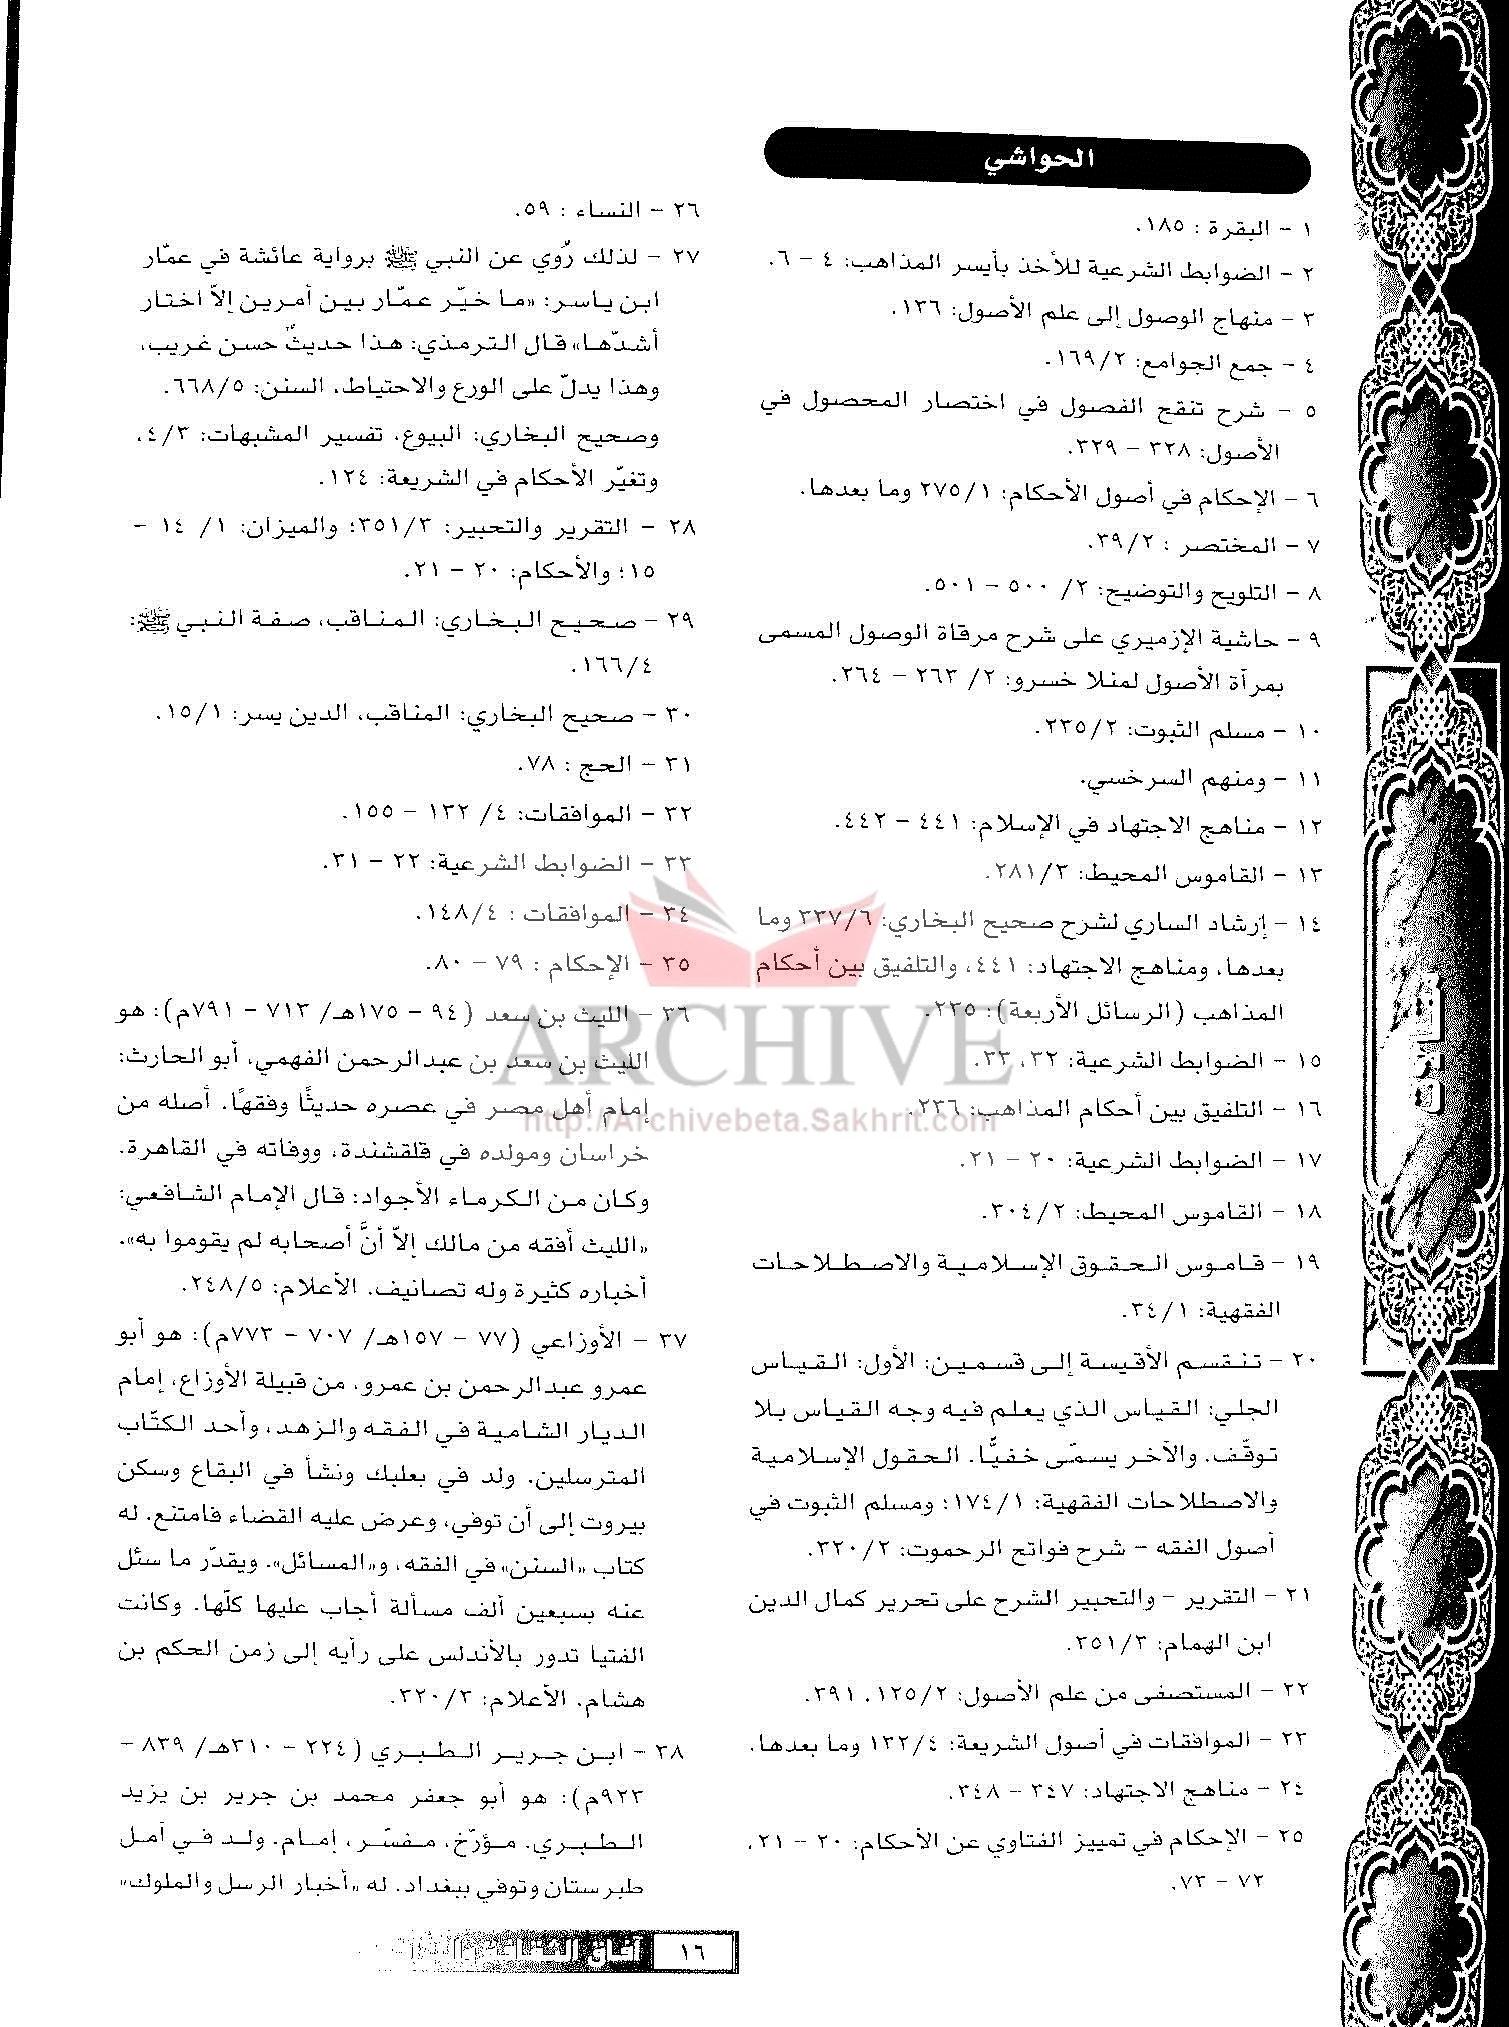 الحواشي
١ - البقرة : ١٨٥.
٢ - الضوابط الشرعية للأخذ بأيسر المذاهب: ٤ - ٦.
٣ - منهاج الوصول إلى علم الأصول: ١٣٦.
٤ - جمع الجوامع: ١٦٩/٢.
٥ - شرح تنقح الفصول في اختصار المحصول في
الأصول: ٣٢٨ - ٣٢٩.
٦ - الإحكام في أصول الأحكام: ٢٧٥/١ وما بعدها.
٧ - المختصر : ٣٩/٢.
٨ - التلويح والتوضيح: ٢/ ٥٠٠ - ٥٠١.
٩ - حاشية الإزميري على شرح مرقاة الوصول المسمى
بمرآة الأصول لمنلا خسرو: ٢/ ٢٦٣ - ٢٦٤.
١٠ - مسلم الثبوت: ٢٣٥/٢.
١١ - ومنهم السرخسي.
١٢ - مناهج الاجتهاد في الإسلام: ٤٤١ - ٤٤٢.
١٣ - القاموس المحيط: ٢٨١/٣.
١٤ - إرشاد الساري لشرح صحيح البخاري: ٢٣٧/٦ وما
بعدها، ومناهج الاجتهاد: ٤٤١، والتلفيق بين أحكام
المذاهب (الرسائل الأربعة): ٢٣٥.
١٥ - الضوابط الشرعية: ٣٢، ٣٣.
١٦ - التلفيق بين أحكام المذاهب: ٢٣٦.
١٧ - الضوابط الشرعية: ٢٠ - ٢١.
١٨ - القاموس المحيط: ٣٠٤/٢.
١٩ - قاموس الحقوق الإسلامية والاصطلاحات
الفقهية: ٣٤/١.
٢٠ - تنقسم الأقيسة إلى قسمين: الأول: القياس
الجلي: القياس الذي يعلم فيه وجه القياس بلا
توقّف. والآخر يسمّى خفيًّا. الحقول الإسلامية
والاصطلاحات الفقهية: ١٧٤/١؛ ومسلم الثبوت في
أصول الفقه - شرح فواتح الرحموت: ٣٢٠/٢.
٢١ - التقرير - والتحبير الشرح على تحرير كمال الدين
ابن الهمام: ٣٥١/٣.
٢٢ - المستصفى من علم الأصول: ١٢٥/٢، ٣٩١.
٢٣ - الموافقات في أصول الشريعة: ١٣٢/٤ وما بعدها.
٢٤ - مناهج الاجتهاد: ٣٤٧ - ٣٤٨.
٢٥ - الإحكام في تمييز الفتاوي عن الأحكام: ٢٠ - ٢١،
٧٢ - ٧٣.
٢٦ - النساء : ٥٩.
٢٧ - لذلك رُوي عن النبي ﷺ برواية عائشة في عمّار
ابن ياسر: «ما خيّر عمّار بين أمرين إلاّ اختار
أشدّها» قال الترمذي: هذا حديثٌ حسن غريب،
وهذا يدلّ على الورع والاحتياط، السنن: ٦٦٨/٥.
وصحيح البخاري: البيوع، تفسير المشبهات: ٤/٣،
وتغيّر الأحكام في الشريعة: ١٢٤.
٢٨ - التقرير والتحبير: ٣٥١/٣؛ والميزان: ١/ ١٤ -
١٥؛ والأحكام: ٢٠ - ٢١.
٢٩ - صحيح البخاري: المناقب، صفة النبي ﷺ:
١٦٦/٤.
٣٠ - صحيح البخاري: المناقب، الدين يسر: ١٥/١.
٣١ - الحج : ٧٨.
٣٢ - الموافقات: ٤/ ١٣٢ - ١٥٥.
٣٣ - الضوابط الشرعية: ٢٢ - ٣١.
٣٤ - الموافقات : ١٤٨/٤.
٣٥ - الإحكام : ٧٩ - ٨٠.
٣٦ - الليث بن سعد (٩٤ - ١٧٥هـ/ ٧١٣ - ٧٩١م): هو
الليث بن سعد بن عبدالرحمن الفهمي، أبو الحارث:
إمام أهل مصر في عصره حديثًا وفقهًا. أصله من
خراسان ومولده في قلقشندة، ووفاته في القاهرة.
وكان من الكرماء الأجواد: قال الإمام الشافعي:
«الليث أفقه من مالك إلاّ أنَّ أصحابه لم يقوموا به».
أخباره كثيرة وله تصانيف. الأعلام: ٢٤٨/٥.
٣٧ - الأوزاعي (٧٧ - ١٥٧هـ/ ٧٠٧ - ٧٧٣م): هو أبو
عمرو عبدالرحمن بن عمرو، من قبيلة الأوزاع، إمام
الديار الشامية في الفقه والزهد، وأحد الكتّاب
المترسلين. ولد في بعلبك ونشأ في البقاع وسكن
بيروت إلى أن توفي، وعرض عليه القضاء فامتنع. له
كتاب «السنن» في الفقه، و«المسائل». ويقدّر ما سئل
عنه بسبعين ألف مسألة أجاب عليها كلّها. وكانت
الفتيا تدور بالأندلس على رأيه إلى زمن الحكم بن
هشام. الأعلام: ٣٢٠/٣.
٣٨ - ابن جرير الطبري (٢٢٤ - ٣١٠هـ/ ٨٣٩ -
٩٢٣م): هو أبو جعفر محمد بن جرير بن يزيد
الطبري. مؤرّخ، مفسّر، إمام. ولد في آمل
طبرستان وتوفي ببغداد. له «أخبار الرسل والملوك»
مقالات
ARCHIVE
http://Archivebeta.Sakhrit.com
١٦
آفاق الثقافة والتراث